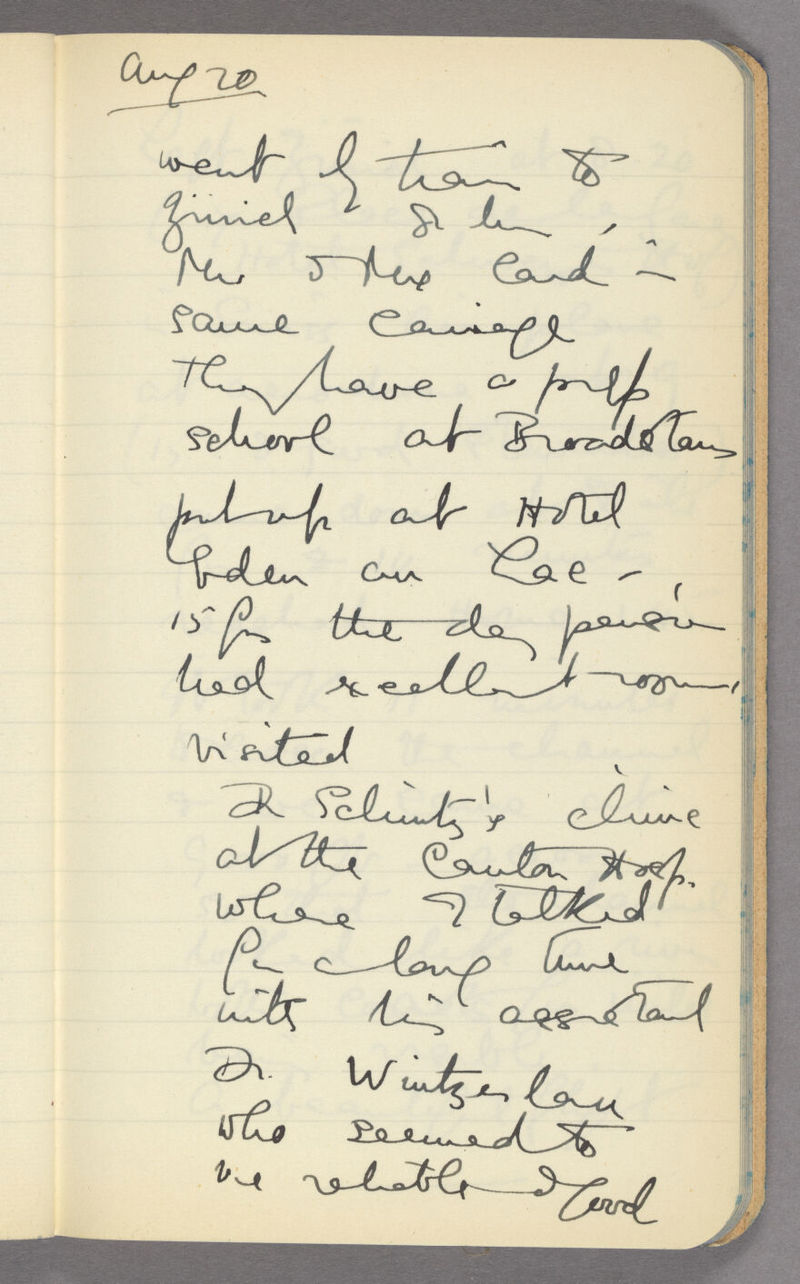 Aug 20
went by train to
Zurich
Mr & Mrs Card in
same carriage
They have a prep
school at Broadstairs
put up at Hotel
Eden au Lac -
15 frs the day pension
had excellent rooms,
visited
Dr Schintz's clinic
at the Canton Hosp.
where I talked
for a long time
with his assistant
Dr.
who seemed to
be reliable & good